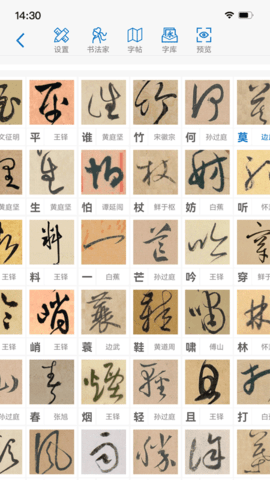 14:30
设置 书法家 字帖 字库 预览
文征明 平 王铎 谁 黄庭坚 竹 宋徽宗 何 孙过庭 莫
黄庭坚 生 黄庭坚 怕 谭延闿 杖 鲜于枢 妨 白蕉 听
王铎 料 王铎 一 白蕉 芒 孙过庭 吟 王铎 穿
王铎 峭 王铎 蓑 边武 鞋 黄道周 啸 傅山 林
孙过庭 春 张旭 烟 王铎 轻 孙过庭 且 王铎 打